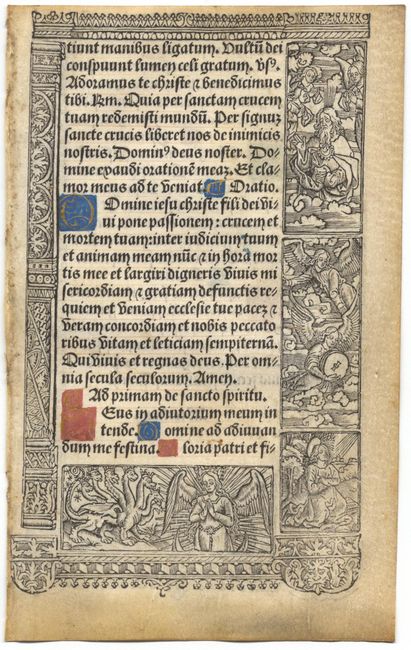 tiunt manibus ligatum. Vultũ dei
conspuunt lumen celi gratum. v̄s⁹.
Adoramus te christe ⁊ benedicimus
tibi. R̃m. Quia per sanctam crucem
tuam redemisti mundũ. Per signuʒ
sancte crucis liberet nos de inimicis
nostris. Domin⁹ deus noster. Do⸗
mine exaudi orationẽ meaʒ. Et cla⸗
mor meus ad te veniat. Oratio.
D Omine iesu christe fili dei vi⸗
ui pone passionem: crucem et
mortem tuam: inter iudicium tuum
et animam meam nũc ⁊ in hora mor
tis mee et largiri digneris viuis mi
sericordiam ⁊ gratiam defunctis re⸗
quiem et veniam ecclesie tue paceʒ ⁊
veram concordiam et nobis peccato
ribus vitam et leticiam sempiternã.
Qui viuis et regnas deus. Per om⸗
nia secula seculorum. Amen.
Ad primam de sancto spiritu.
Eus in adiutorium meum in
tende. D omine ad adiuuan
dum me festina. loria patri et fi⸗